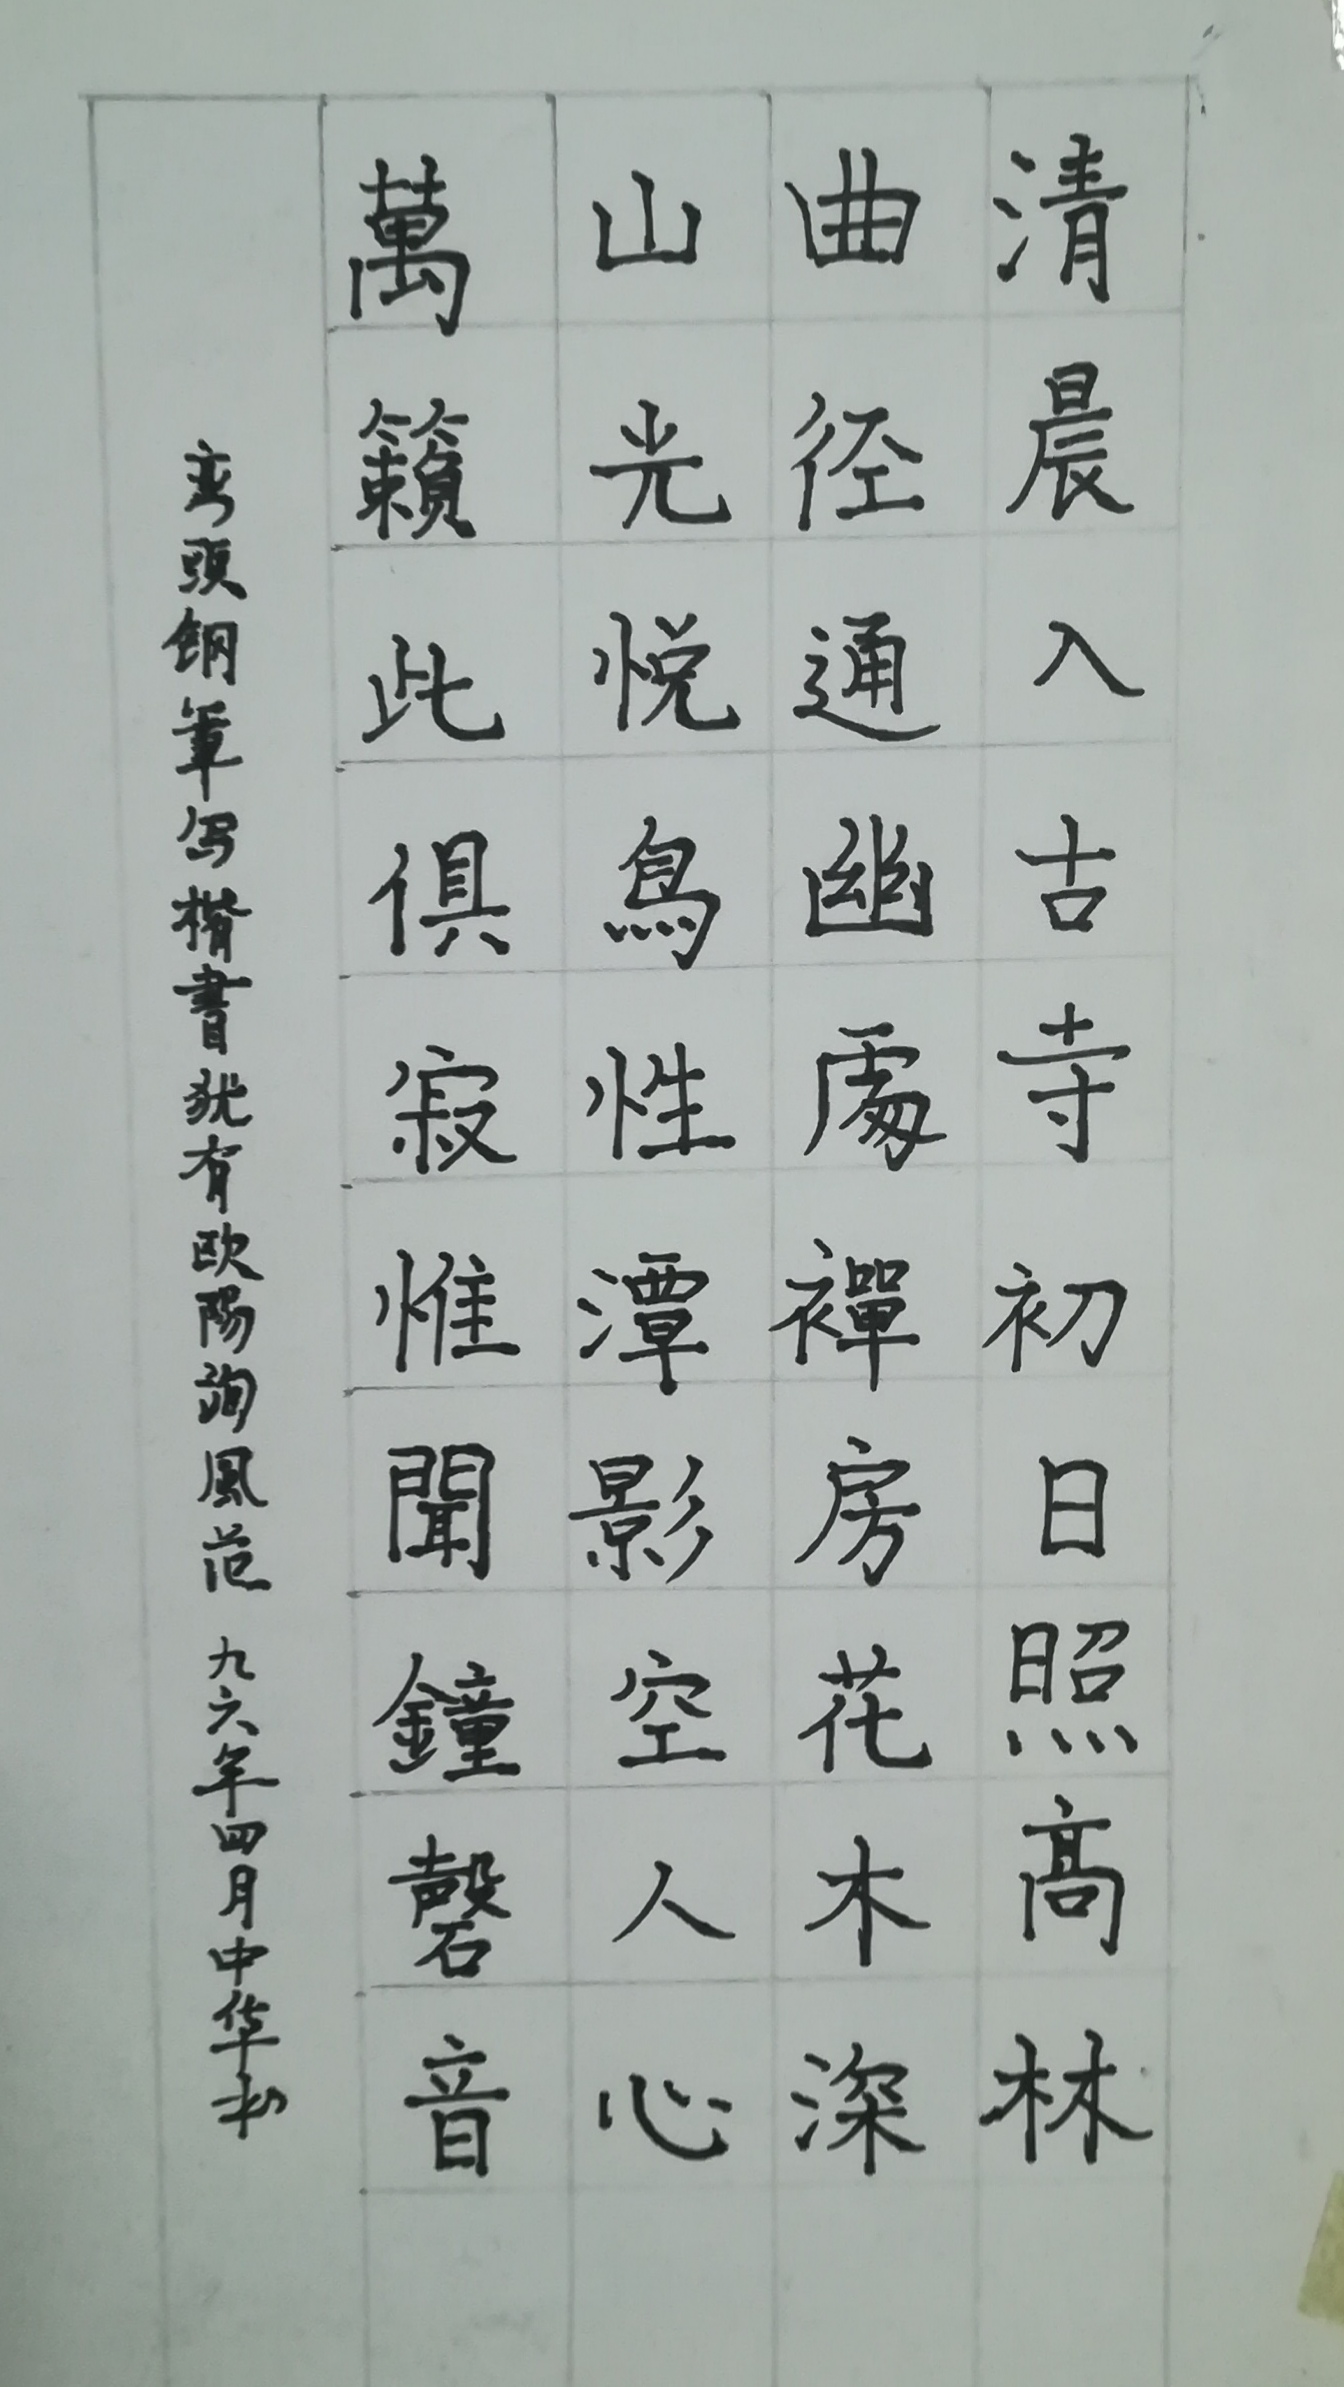 清晨入古寺初日照高林
曲径通幽處禪房花木深
山光悦鳥性潭影空人心
萬籟此俱寂惟聞鐘磬音
弯頭钢筆写楷書犹有欧陽詢風范 九六年四月中华书